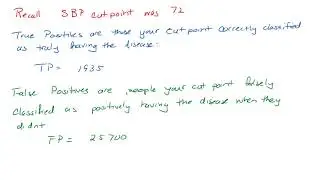 Recall SBP cut point was 72
True Positives are those your cut point correctly classified
as truly having the disease:
TP = 1935
False Positives are people your cut point falsely
classified as positively having the disease when they
didnt
FP = 25700